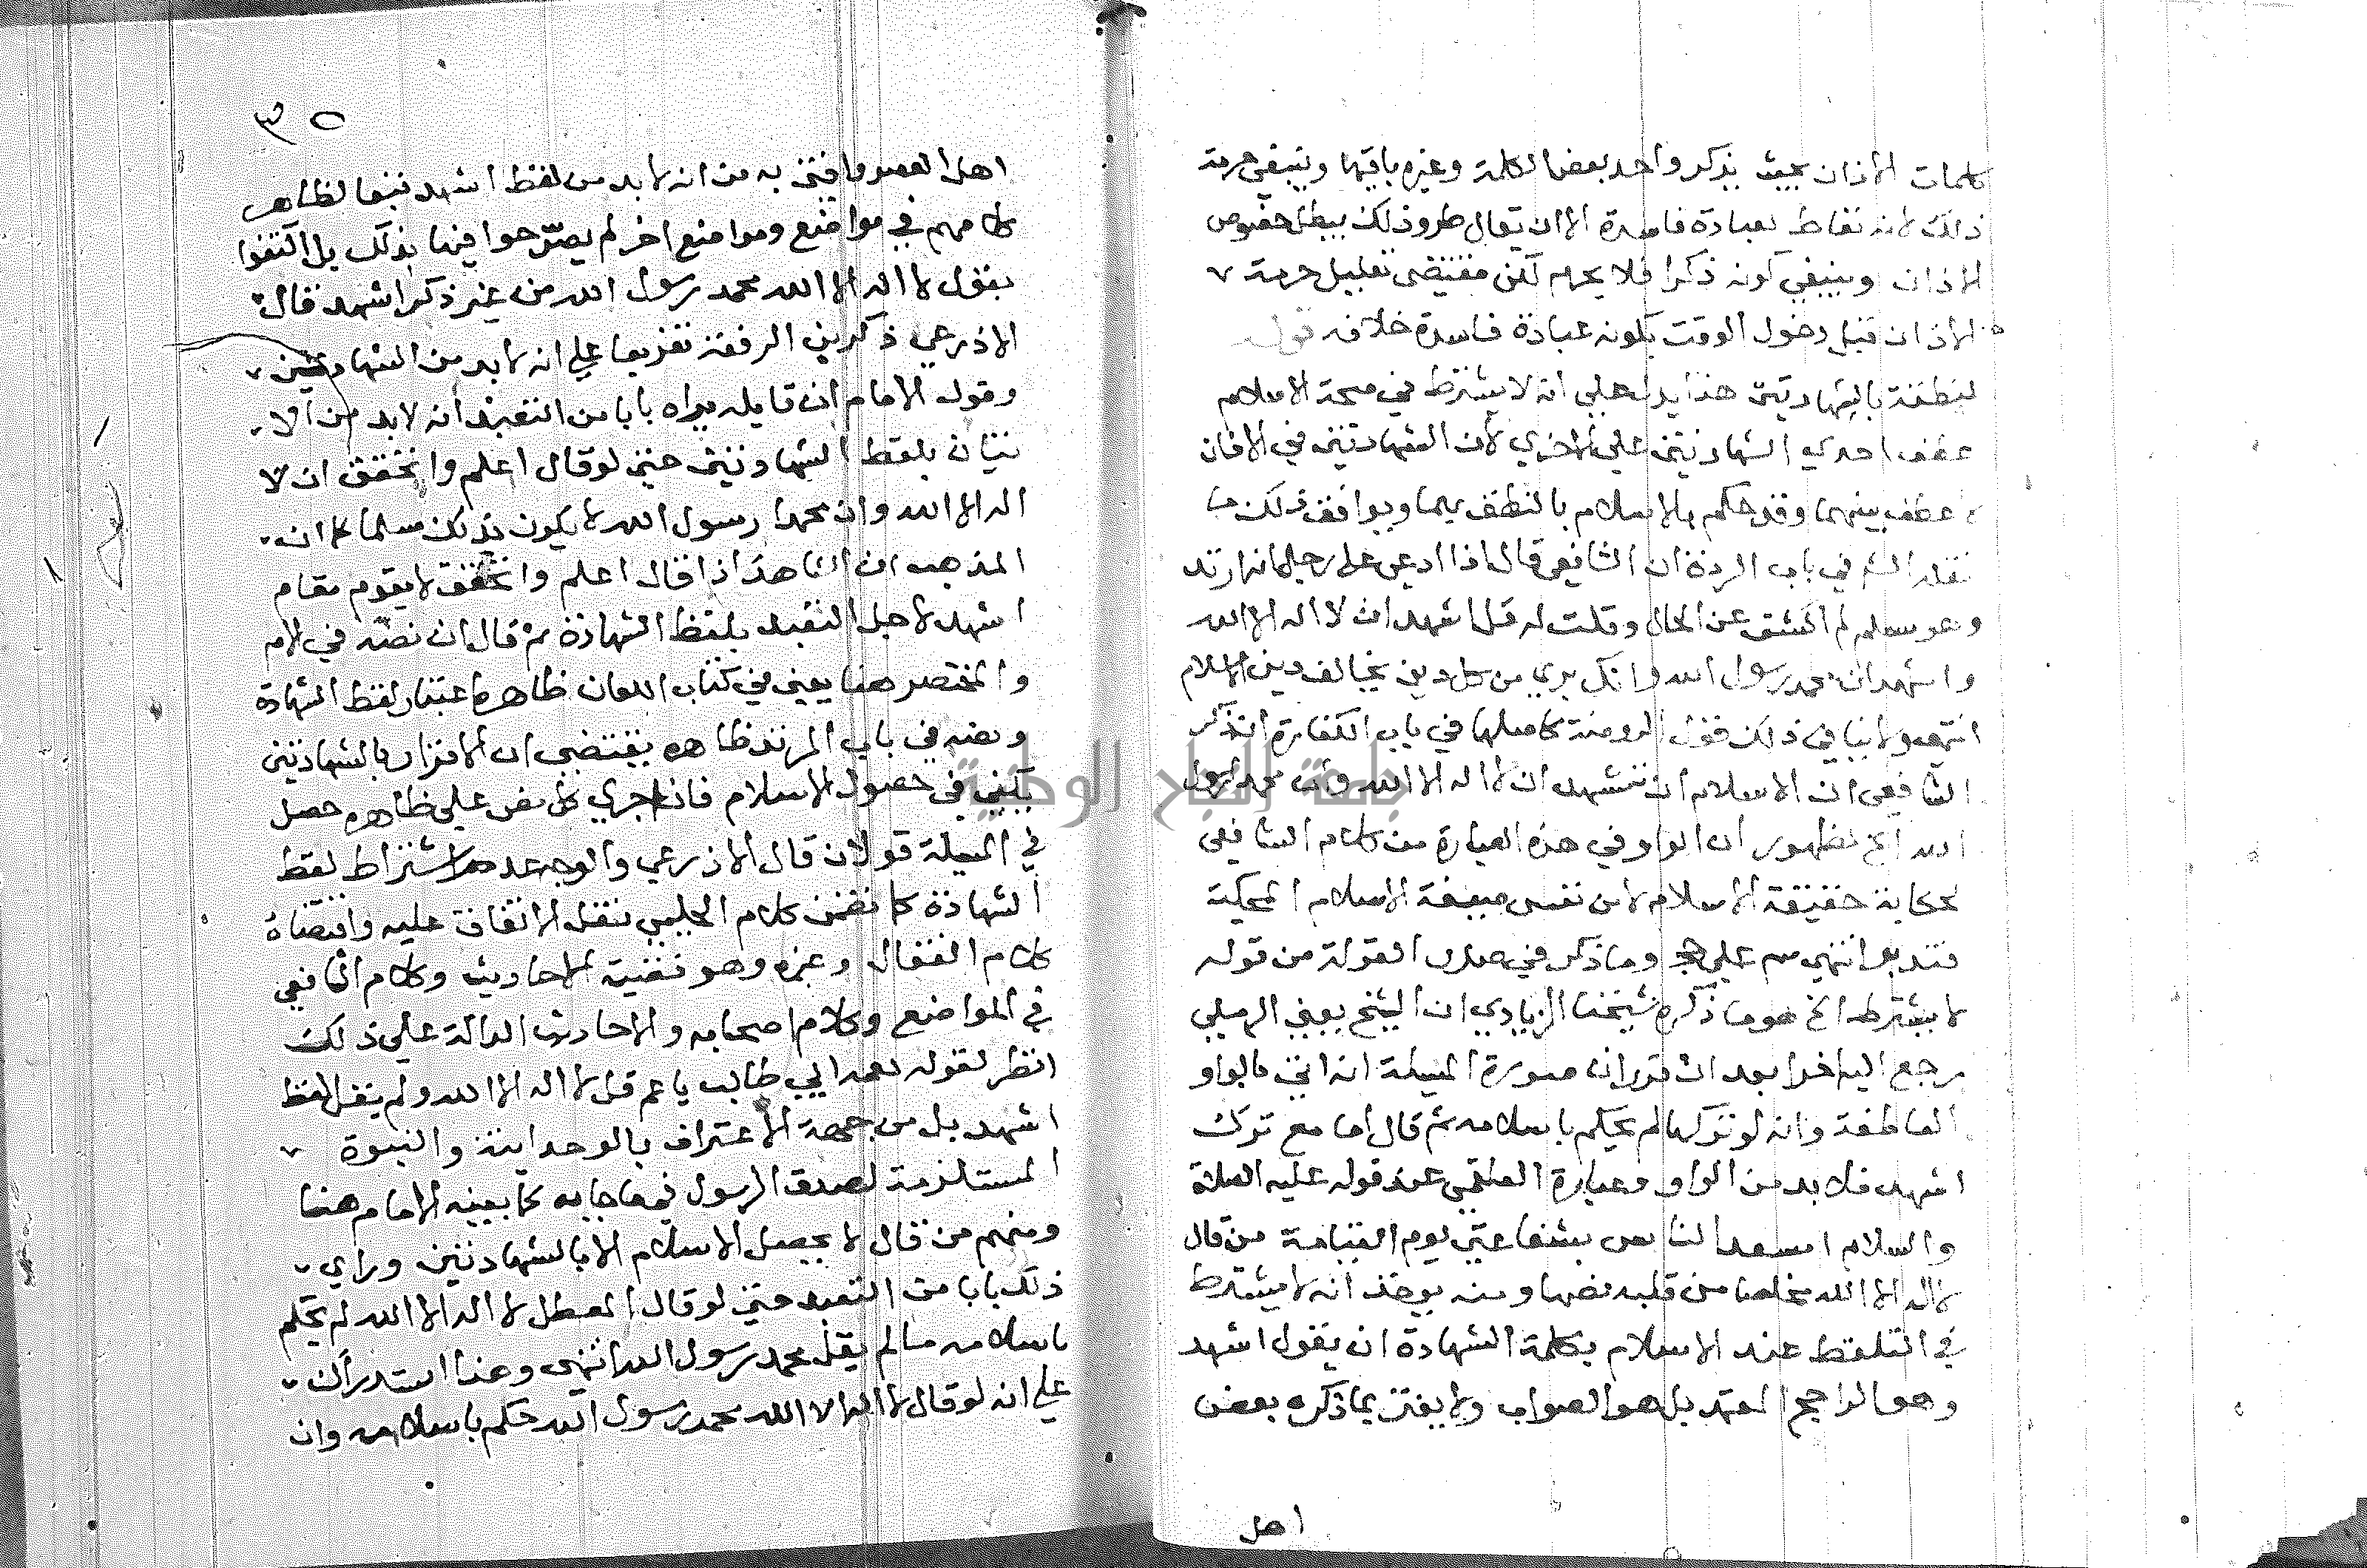 كلمات الاذان بحيث يذكر واحد بعض الكلمة وغيره باقيها وينبغي حرمة
ذلك لانه تعاط لعبادة فاسدة الا ان يقال طرو ذلك يبطل خصوص
الاذان وينبغي كونه ذكرا فلا يحرم لكن مقتضى تعليل حرمة
الاذان قبل دخول الوقت بكونه عبادة فاسدة خلافه قوله
لنطقه بالشهادتين هذا يدل علي انه لا يشترط في صحة الاسلام
عطف احدي الشهادتين علي الاخري لان الشهادتين في الاذان
لا عطف بينهما وقد حكم بالاسلام بالنطق بهما ويوافق ذلك ما
نقله الشر في باب الردة ان الشافعي قال اذا ادعي على رجل انه ارتد
وهو مسلم لم اكشف عن الحال وقلت له قل اشهد ان لا اله الا الله
واشهد ان محمد رسول الله وانك بري من كل دين يخالف دين الاسلام
انتهى ولا ينافي ذلك قول الروضة كاصلها في باب الكفارة
الشافعي ان الاسلام ان تشهد ان لا اله الا الله وان محمد رسول
الله الخ لظهور ان الواو في هذه العبارة من كلام الشافعي
لحكاية حقيقة الاسلام لا من نفس صيغة الاسلام المحكية
فتدبر انتهي سم علي حج وما ذكر في صدر القولة من قوله
لا يشترط الخ هو ما ذكره شيخنا الزيادي ان الشيخ يعني الرملي
رجع اليه اخرا بعد ان قرر ان صورة المسلة انه اتي بالواو
العاطفة وانه لو تركها لم يحكم باسلامه ثم قال اما مع ترك
اشهد فلا بد من الواو وعبارة العلقمي عند قوله عليه الصلاة
والسلام اسعد الناس بشفاعتي يوم القيامة من قال
لا اله الا الله مخلصا من قلبه نصها ومنه يوخذ انه لا يشترط
في التلفظ عند الاسلام بكلمة الشهادة ان يقول اشهد
وهو الراجح المعتمد بل هو الصواب ولا يغتر بما ذكره بعض
اهل
٣٥
اهل العصر وافتى به من انه لا بد من لفظ اشهد تبعا لظاهر
كلامهم في مواضع ومواضع اخر لم يصرحوا فيها بذلك بل اكتفوا
بقول لا اله الا الله محمد رسول الله من غير ذكر اشهد قال
الاذرعي ذكر بن الرفعة تفريعا علي انه لا بد من الشهادتين
وقول الامام ان قايله يراه بابا من التعبد انه لا بد من الا
تيان بلفظ الشهادتين حتى لو قال اعلم واتحقق ان لا
اله الا الله وان محمدا رسول الله لا يكون بذلك مسلما لان
المذهب ان الشاهد اذا قال اعلم واتحقق لا يقوم مقام
اشهد لاجل التعبد بلفظ الشهادة ثم قال ان نصه في الام
والمختصر هنا يعني في كتاب اللعان ظاهره اعتبار لفظ الشهادة
ونصه في باب المرتد ظاهره يقتضي ان الاقرار بالشهادتين
يكفي في حصول الاسلام فان اجري كل نص علي ظاهره حصل
في المسلة قولان قال الاذرعي والوجه عدم اشتراط لفظ
الشهادة كما تضمن كلام الحليمي بنقل الاتفاق عليه واقتضاه
كلام القفال وغيره وهو قضية الاحاديث وكلام الشافعي
في المواضع وكلام اصحابه والاحاديث الدالة علي ذلك
انظر لقوله لعمه ابي طالب يا عم قل لا اله الا الله ولم يقل لفظ
اشهد بل من جهة الاعتراف بالوحدانية والنبوة
المستلزمة لصدق الرسول فيما جا به كما بينه الامام هنا
ومنهم من قال لا يحصل الاسلام الا بالشهادتين وراي
ذلك بابا من التعبد حتى لو قال المعطل لا اله الا الله لم يحكم
باسلامه ما لم يقل محمد رسول الله انتهى وهذا استدراك
علي انه لو قال لا اله الا الله محمد رسول الله حكم باسلامه وان
جامعة النجاح الوطنية